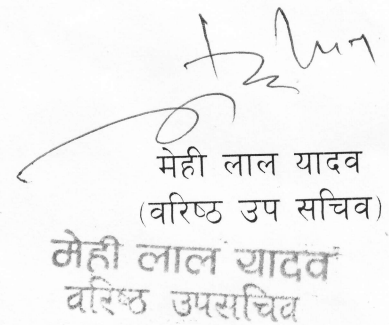 मेही लाल यादव
(वरिष्ठ उप सचिव)
मेही लाल यादव
वरिष्ठ उपसचिव